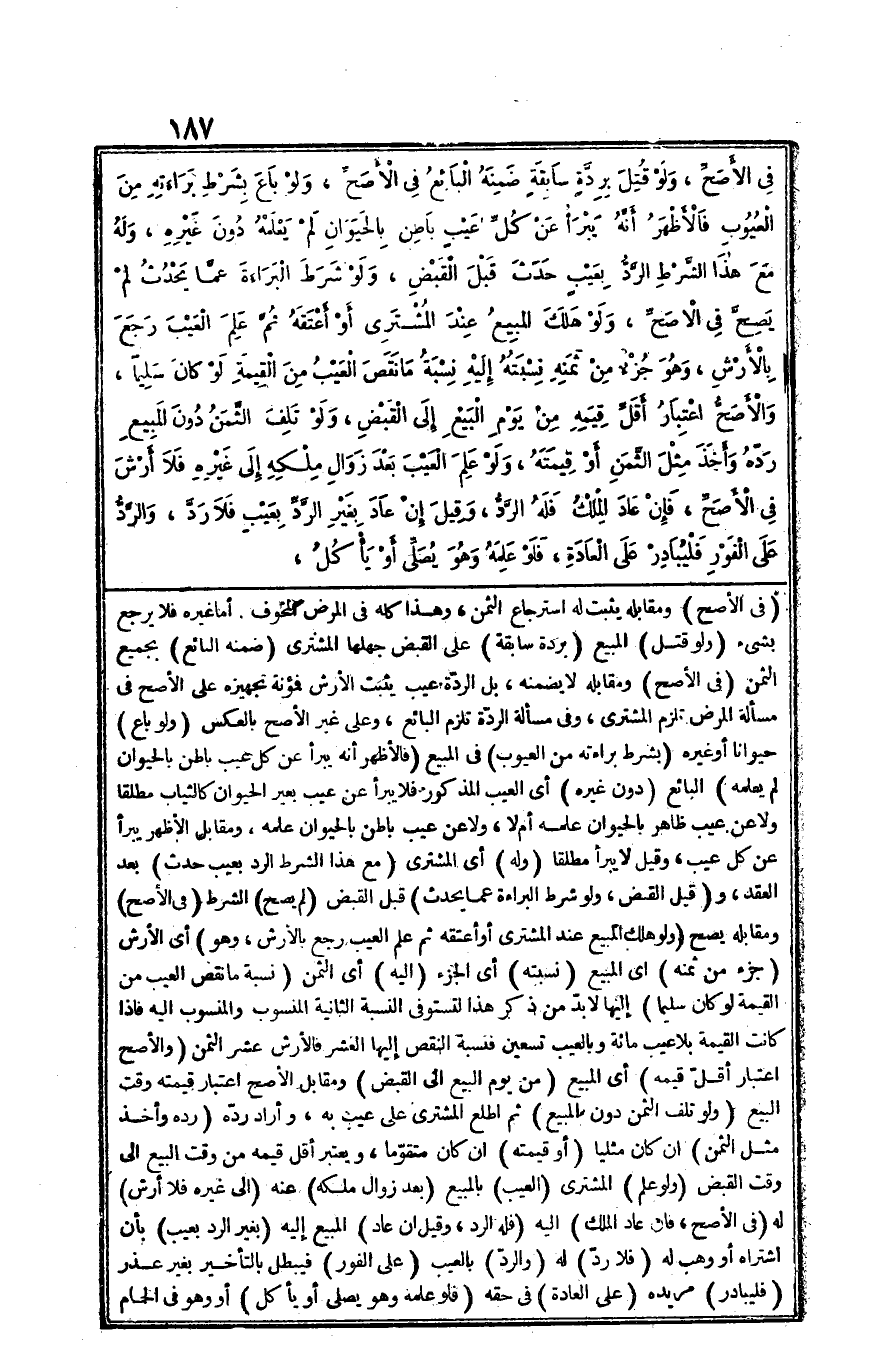 ١٨٧
فِى الْأَصَحِّ ، وَلَوْ قُتِلَ بِرِدَّةٍ سَابِقَةٍ ضَمِنَهُ الْبَائِعُ فِى الْأَصَحِّ ، وَلَوْ بَاعَ بِشَرْطِ بَرَاءَتِهِ مِنَ
الْعُيُوبِ فَالْأَظْهَرُ أَنَّهُ يَبْرَأُ عَنْ كُلِّ عَيْبٍ بَاطِنٍ بِالْحَيَوَانِ لَمْ يَعْلَمْهُ دُونَ غَيْرِهِ ، وَلَهُ
مَعَ هٰذَا الشَّرْطِ الرَّدُّ بِعَيْبٍ حَدَثَ قَبْلَ الْقَبْضِ ، وَلَوْ شَرَطَ الْبَرَاءَةَ عَمَّا يَحْدُثُ لَمْ
يَصِحَّ فِى الْاصَحِّ ، وَلَوْ هَلَكَ الْمَبِيعُ عِنْدَ الْمُشْتَرِى أَوْ أَعْتَقَهُ ثُمَّ عَلِمَ الْعَيْبَ رَجَعَ
بِالْأَرْشِ ، وَهُوَ جُزْءٌ مِنْ ثَمَنِهِ نِسْبَتُهُ إِلَيْهِ نِسْبَةُ مَانَقَصَ الْعَيْبُ مِنَ الْقِيمَةِ لَوْ كَانَ سَلِيمًا ،
وَالْأَصَحُّ اعْتِبَارُ أَقَلِّ قِيَمِهِ مِنْ يَوْمِ الْبَيْعِ إِلَى الْقَبْضِ ، وَلَوْ تَلِفَ الثَّمَنُ دُونَ الْمَبِيعِ
رَدَّهُ وَأَخَذَ مِثْلَ الثَّمَنِ أَوْ قِيمَتَهُ ، وَلَوْ عَلِمَ الْعَيْبَ بَعْدَ زَوَالِ مِلْكِهِ إِلَى غَيْرِهِ فَلَا أَرْشَ
فِى الْأَصَحِّ ، فَإِنْ عَادَ الْمِلْكُ فَلَهُ الرَّدُّ ، وَقِيلَ إِنْ عَادَ بِغَيْرِ الرَّدِّ بِعَيْبٍ فَلَا رَدَّ ، وَالرَّدُّ
عَلَى الْفَوْرِ فَلْيُبَادِرْ عَلَى الْعَادَةِ ، فَلَوْ عَلِمَهُ وَهُوَ يُصَلِّى أَوْ يَأْكُلُ ،
( فى الأصح ) ومقابله يثبت له استرجاع الثمن ، وهـذا كله فى المرض المخوف . أماغيره فلا يرجع
بشىء ( ولو قتـل ) المبيع ( بردة سابقة ) على القبض جهلها المشترى ( ضمنه البائع ) بجميع
الثمن ( فى الأصح ) ومقابله لايضمنه ، بل الردّة عيب يثبت الأرش فمؤنة تجهيزه على الأصح فى
مسألة المرض تلزم المشترى ، وفى مسألة الردّة تلزم البائع ، وعلى غير الأصح بالعكس ( ولو باع )
حيوانا أوغيره ( بشرط براءته من العيوب ) فى المبيع ( فالأظهر أنه يبرأ عن كل عيب باطن بالحيوان
لم يعلمه ) البائع ( دون غيره ) أى العيب المذكور فلايبرأ عن عيب بغير الحيوان كالثياب مطلقا
ولاعن عيب ظاهر بالحيوان علمـه أم لا ، ولاعن عيب باطن بالحيوان علمه ، ومقابل الأظهر يبرأ
عن كل عيب ، وقيل لايبرأ مطلقا ( وله ) أى المشترى ( مع هذا الشرط الرد بعيب حدث ) بعد
العقد ، و ( قبل القبض ، ولو شرط البراءة عما يحدث ) قبل القبض ( لم يصح ) الشرط ( فى الأصح )
ومقابله يصح ( ولوهلك المبيع عند المشترى أوأعتقه ثم علم العيب رجع بالأرش ، وهو ) أى الأرش
( جزء من ثمنه ) اى المبيع ( نسبته ) أى الجزء ( اليه ) أى الثمن ( نسبة مانقص العيب من
القيمة لوكان سليما ) إليها لابدّ من ذكر هذا لتستوفى النسبة الثانية المنسوب والمنسوب اليه فاذا
كانت القيمة بلاعيب مائة وبالعيب تسعين فنسبة النقص إليها العشر فالأرش عشر الثمن ( والأصح
اعتبار أقـلّ قيمه ) أى المبيع ( من يوم البيع الى القبض ) ومقابل الأصح اعتبار قيمته وقت
البيع ( ولو تلف الثمن دون المبيع ) ثم اطلع المشترى على عيب به ، وأراد ردّه ( رده وأخـذ
مثـل الثمن ) ان كان مثليا ( أو قيمته ) ان كان متقوّما ، ويعتبر أقل قيمه من وقت البيع الى
وقت القبض ( ولوعلم ) المشترى ( العيب ) بالمبيع ( بعد زوال ملكه ) عنه ( الى غيره فلا أرش )
له ( فى الأصح ، فان عاد الملك ) اليه ( فله الرد ، وقيل ان عاد ) المبيع إليه ( بغير الرد بعيب ) بأن
اشتراه أو وهب له ( فلا ردّ ) له ( والردّ ) بالعيب ( على الفور ) فيبطل بالتأخـير بغير عـذر
( فليبادر ) مريده ( على العادة ) فى حقه ( فلو علمه وهو يصلى أو يأكل ) أو وهو فى الحمام